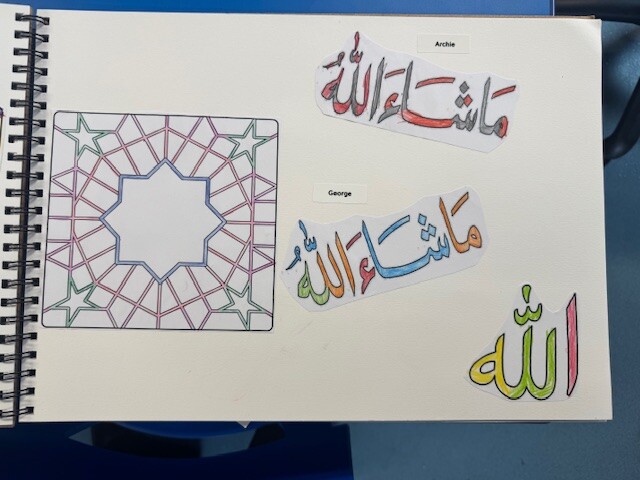 Archie
مَا شَاءَ اللّٰهُ
George
مَا شَاءَ اللّٰهُ
الله